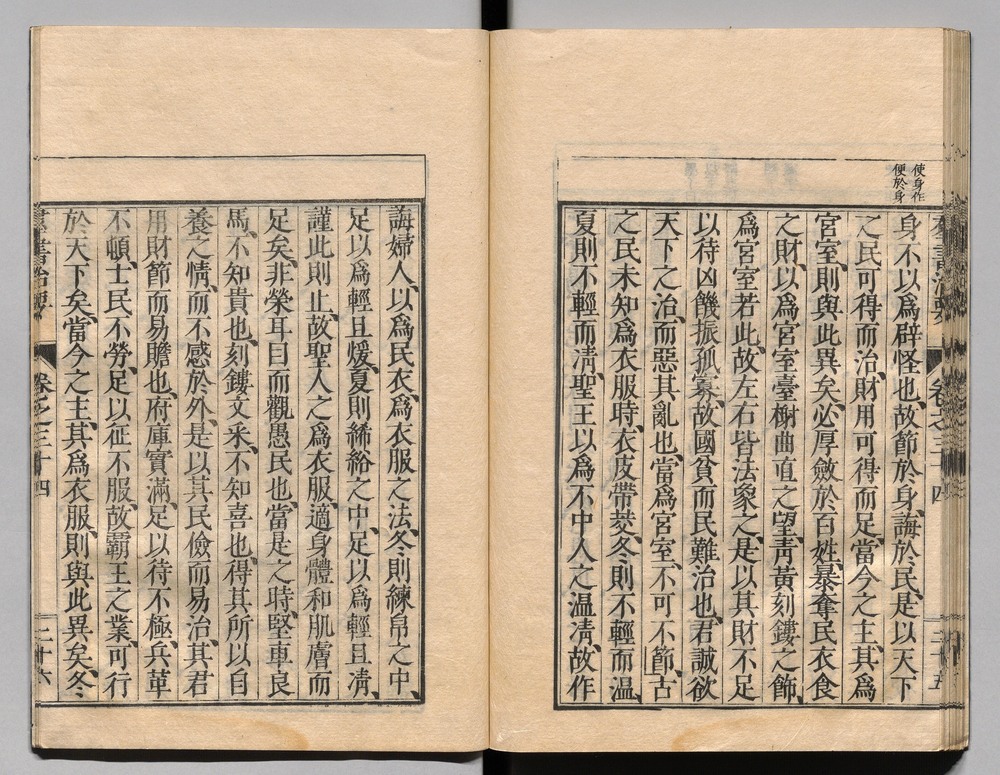 使身作
便於身
身不以爲辟怪也、故節於身、誨於民、是以天下
之民可得而治、財用可得而足、當今之主、其爲
宮室、則與此異矣、必厚斂於百姓、暴奪民衣食
之財、以爲宮室臺榭曲直之望、靑黃刻鏤之飾、
爲宮室若此、故左右皆法象之、是以其財不足
以待凶饑振孤寡、故國貧而民難治也、君誠欲
天下之治、而惡其亂也、當爲宮室、不可不節、古
之民未知爲衣服時、衣皮帶茭、冬則不輕而温、
夏則不輕而凊、聖王以爲不中人之温凊、故作
誨婦人、以爲民衣、爲衣服之法、冬則練帛之中、
足以爲輕且煖、夏則絺綌之中、足以爲輕且凊、
謹此則止、故聖人之爲衣服、適身體和肌膚而
足矣、非榮耳目而觀愚民也、當是之時、堅車良
馬、不知貴也、刻鏤文采、不知喜也、得其所以自
養之情、而不感於外、是以其民儉而易治、其君
用財節而易贍也、府庫實滿、足以待不極、兵革
不頓、士民不勞、足以征不服、故霸王之業、可行
於天下矣、當今之主、其爲衣服、則與此異矣、冬
羣書治要 卷之三十四 二十六